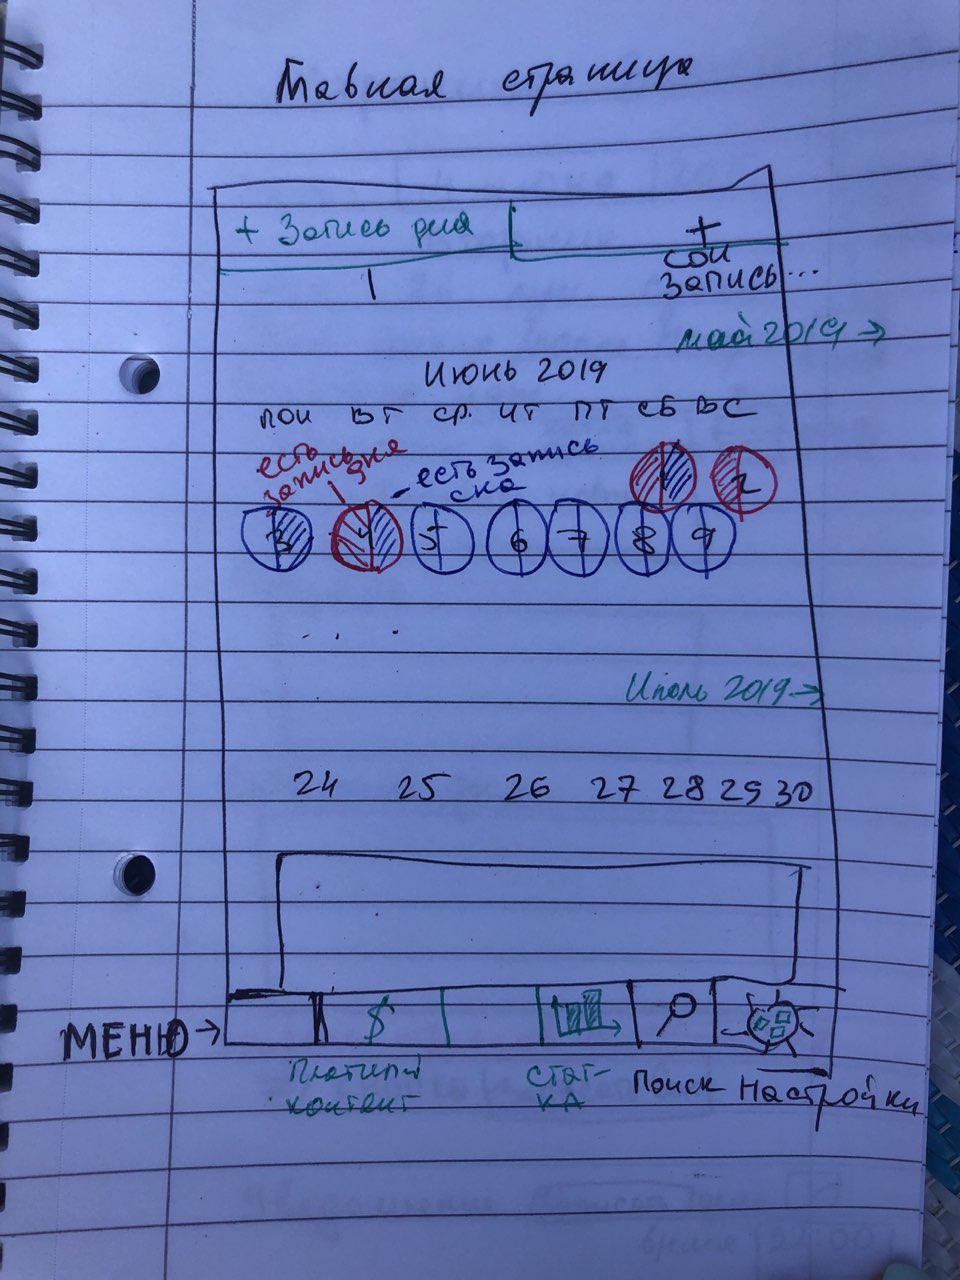 Главная страница
+ Запись дня
+
сон
запись...
май 2019 →
Июнь 2019
пон вт ср. чт пт сб вс
есть
запись дня
есть запись
сна
1 2
3 4 5 6 7 8 9
. . .
Июль 2019→
24 25 26 27 28 29 30
МЕНЮ→
$
Платный
контент
стат-
ка
Поиск
Настройки